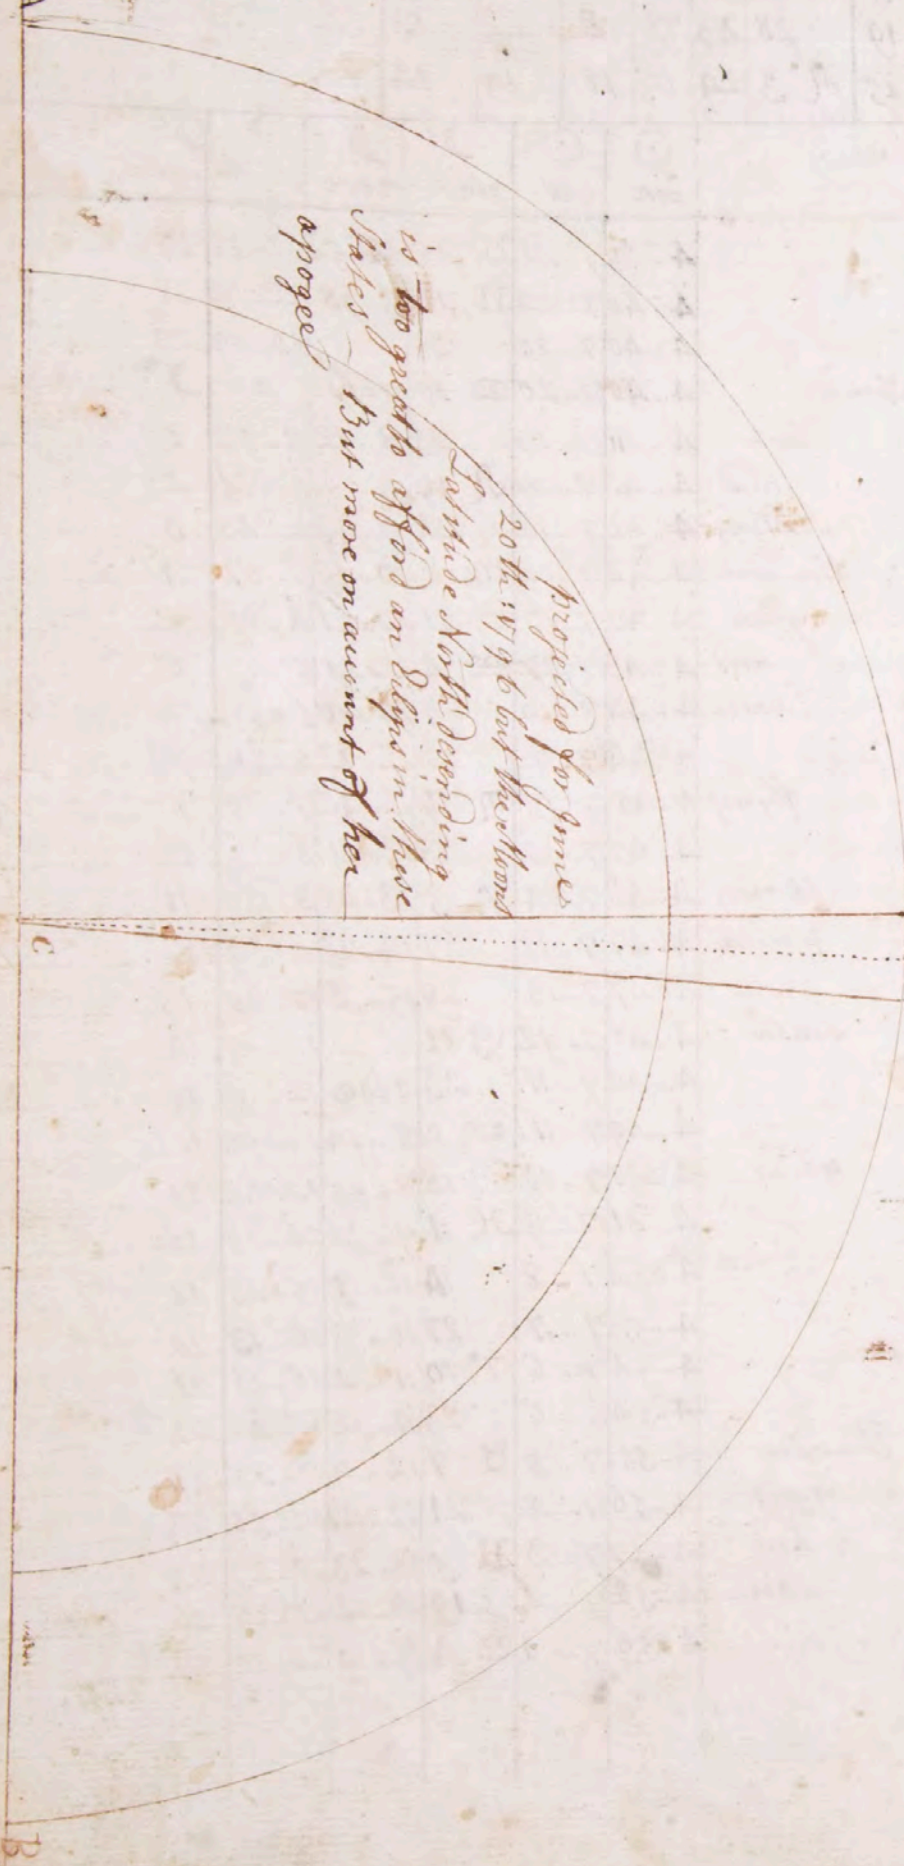 projected for June
20th 1796 but the Moons
Latitude North desending
is too great to afford an Eclips in these
States But more on account of her
apogee
C
B